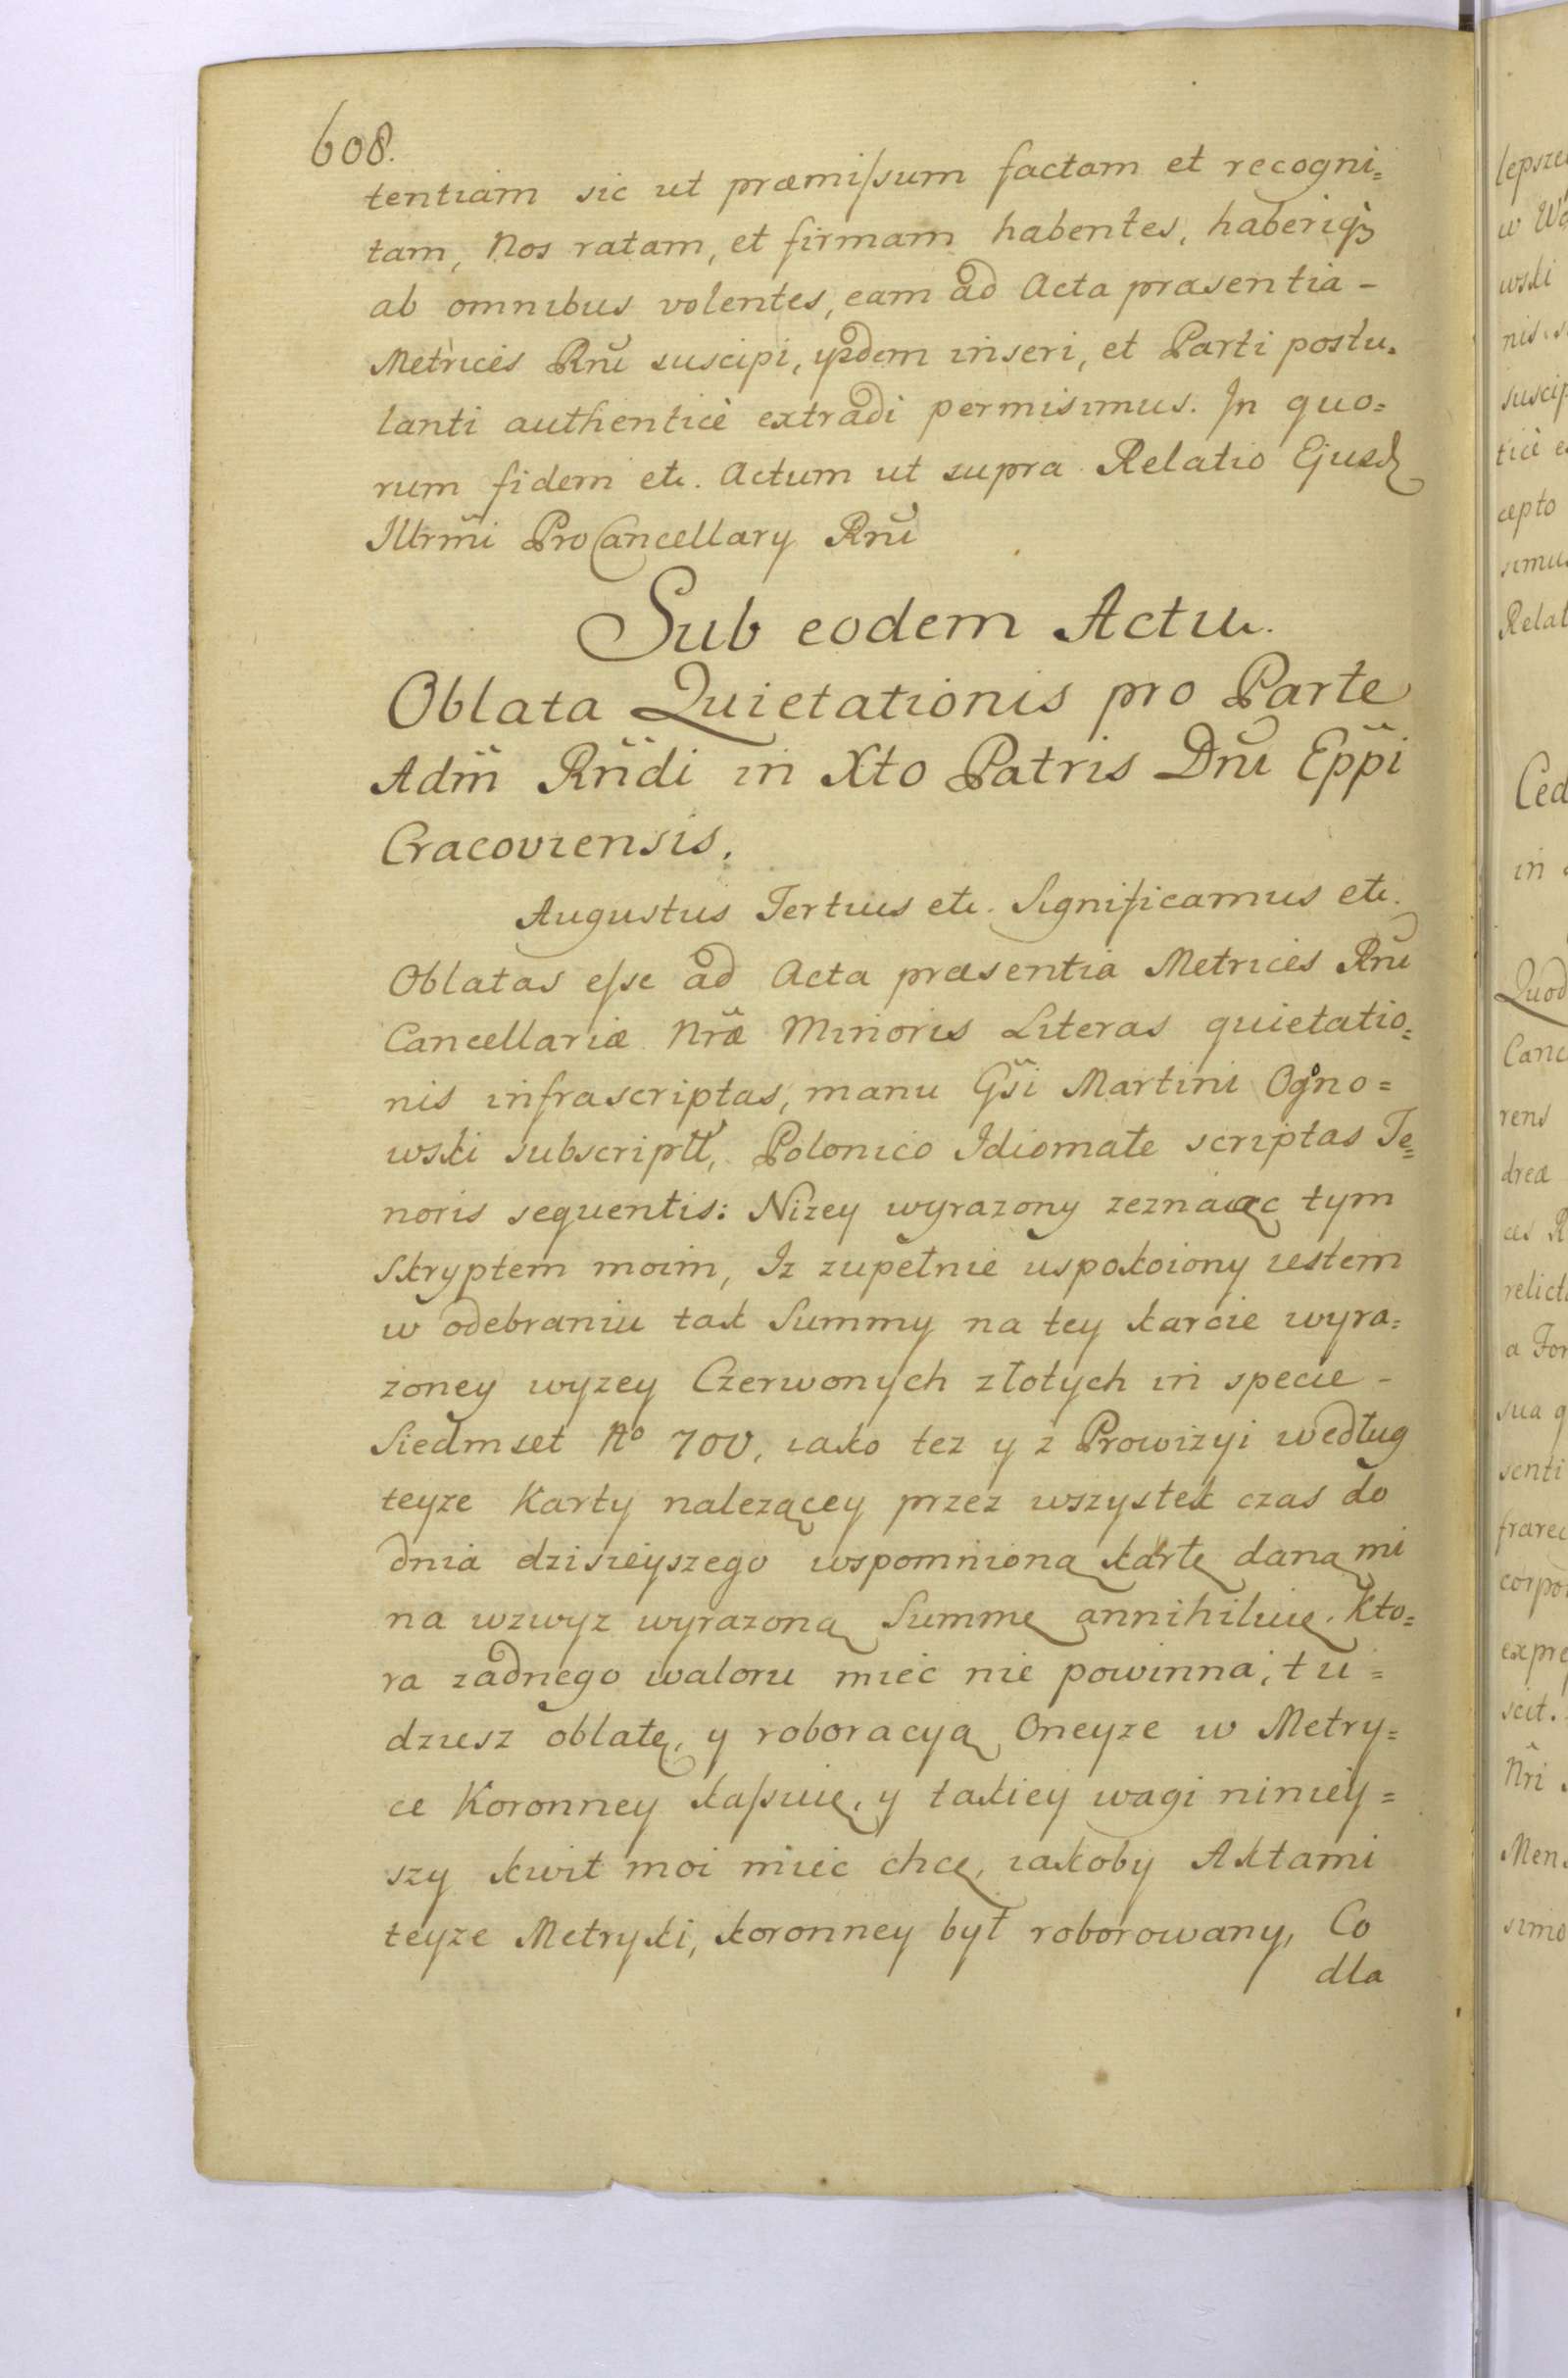 608.
tentiam sic ut præmissum factam et recogni=
tam, Nos ratam, et firmam habentes, haberiqꝫ
ab omnibus volentes, eam ad Acta præsentia -
Metrices Rñi suscipi, ijsdem inseri, et Parti postu=
lanti authenticè extradi permisimus. In quo=
rum fidem etc. Actum ut supra Relatio Ejusd
Illrm̃i ProCancellary Rñi
Sub eodem Actu.
Oblata Quietationis pro Parte
Adm̃ Rñdi in Xto Patris Dñi Epp̃i
Cracoviensis.
Augustus Tertius etc. Significamus etc.
Oblatas esse ad Acta præsentia Metrices Rñi
Cancellariæ Nr̃æ Minoris Literas quietatio=
nis infrascriptas, manu Gs̃i Martini Ogono=
wski subscriptt̃, Polonico Idiomate scriptas Te=
noris sequentis: Nizey wyrazony zeznaiąc tym
Skryptem moim, Iz zupełnie uspokoiony iestem
w odebraniu tak Summy na tey karcie wyra=
zoney wyzey Czerwonych złotych in specie -
Siedmset No 700, iako tez y z Prowizyi według
teyze Karty nalezącey przez wszystek czas do
dnia dzisieyszego wspomnioną kartę daną mi
na wzwyz wyrazoną Summę annihiluię. Kto=
ra zadnego waloru miec nie powinna, tu=
dziesz oblatę, y roboracyą Oneyze w Metry=
ce Koronney kassuię, y takiey wagi niniey=
szy kwit moi miec chcę, iakoby Aktami
teyze Metryki, koronney był roborowany, Co
dla
lepsze
w
wski
nis
suscip
ticè e
cepto
simu
Relat
Ced
in
Quod
Canc
rens
dreæ
relict
a For
sua q
senti
frarec
corpor
expre
scit.
Nr̃i
Men
simo